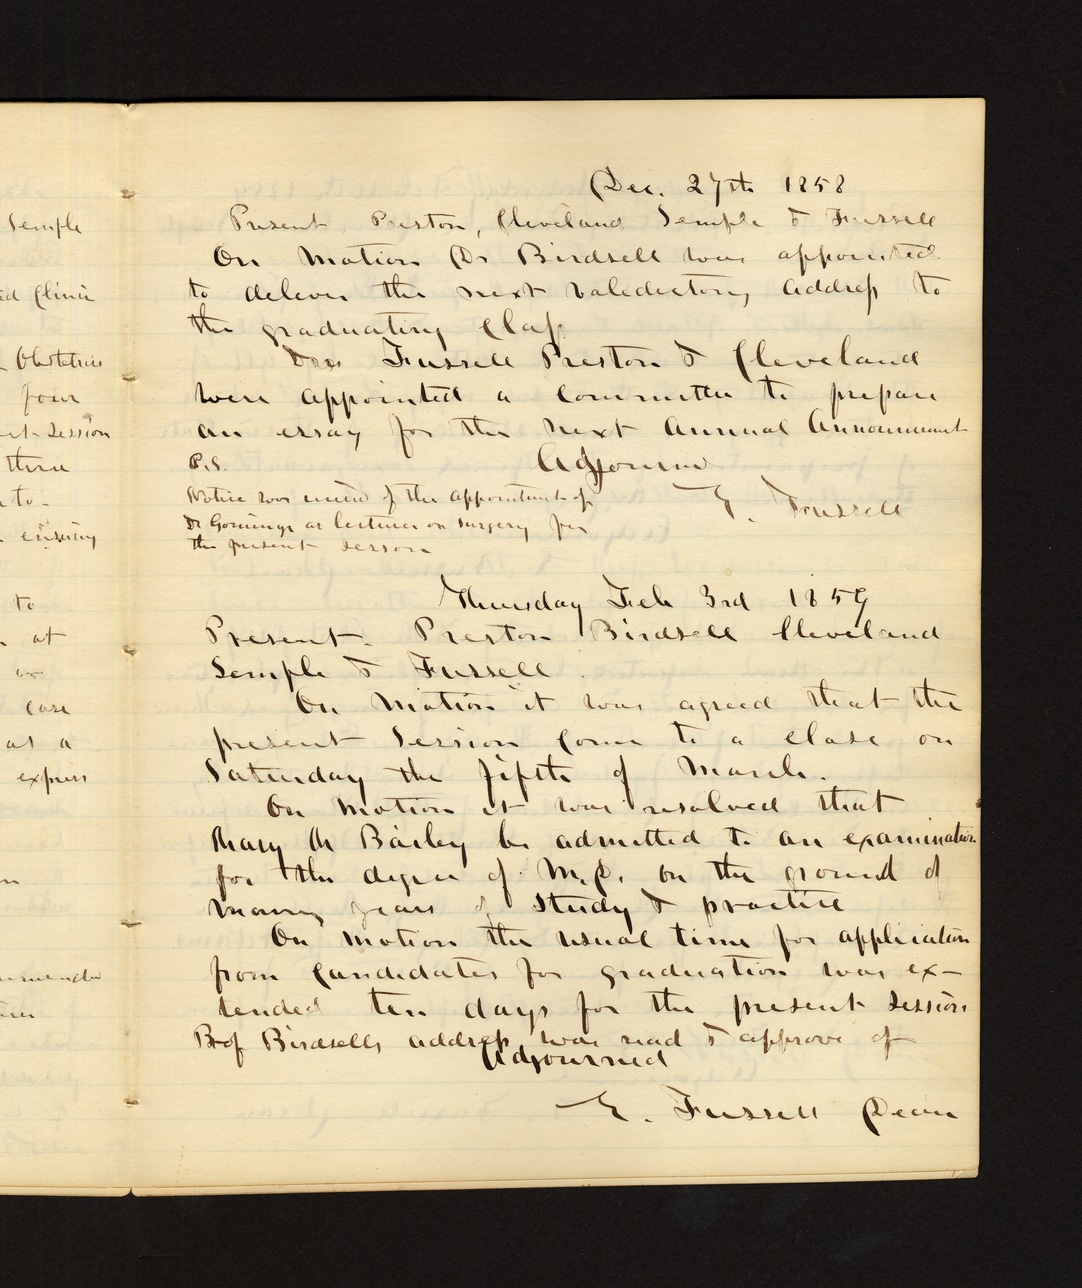 Semple
ed Clinic
Obstetrics
four
ent Session
there
to
ensuing
to
at
or
case
as a
express
Dec. 27th 1858
Present Preston, Cleveland Semple & Fussell
On Motion Dr Birdsell was appointed
to deliver the next Valedictory Address to
the graduating Class
Drs Fussell Preston & Cleveland
were appointed a Committee to prepare
an essay for the next Annual Announcement
Adjourned
P.S.
Notice was recievd of the appointment of
Dr Gomings as lecturer on surgery for
the present session
E. Fussell
Thursday Feb 3rd 1859
Present. Preston Birdsell Cleveland
Semple & Fussell.
On Motion it was agreed that the
present Session come to a close on
Saturday the fifth of March.
On Motion it was resolved that
Mary M Bailey be admitted to an examination
for the degree of M.D. on the ground of
many years of study & practice
On motion the usual time for application
from Candidates for graduation was ex-
tended ten days for the present session
Prof Birdsells address was read & approve of
Adjourned
E. Fussell Dean